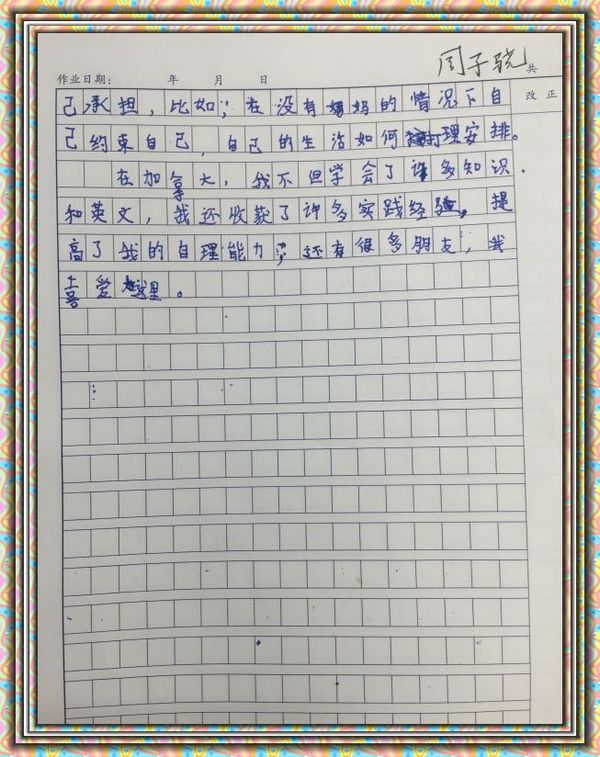 周子骁 共
作业日期: 年 月 日
改正
己承担，比如；在没有妈妈的情况下自
己约束自己，自己的生活如何打理安排。
在加拿大，我不但学会了许多知识，
和英文，我还收获了许多实践经验，提
高了我的自理能力；还有很多朋友，我
喜爱这里。